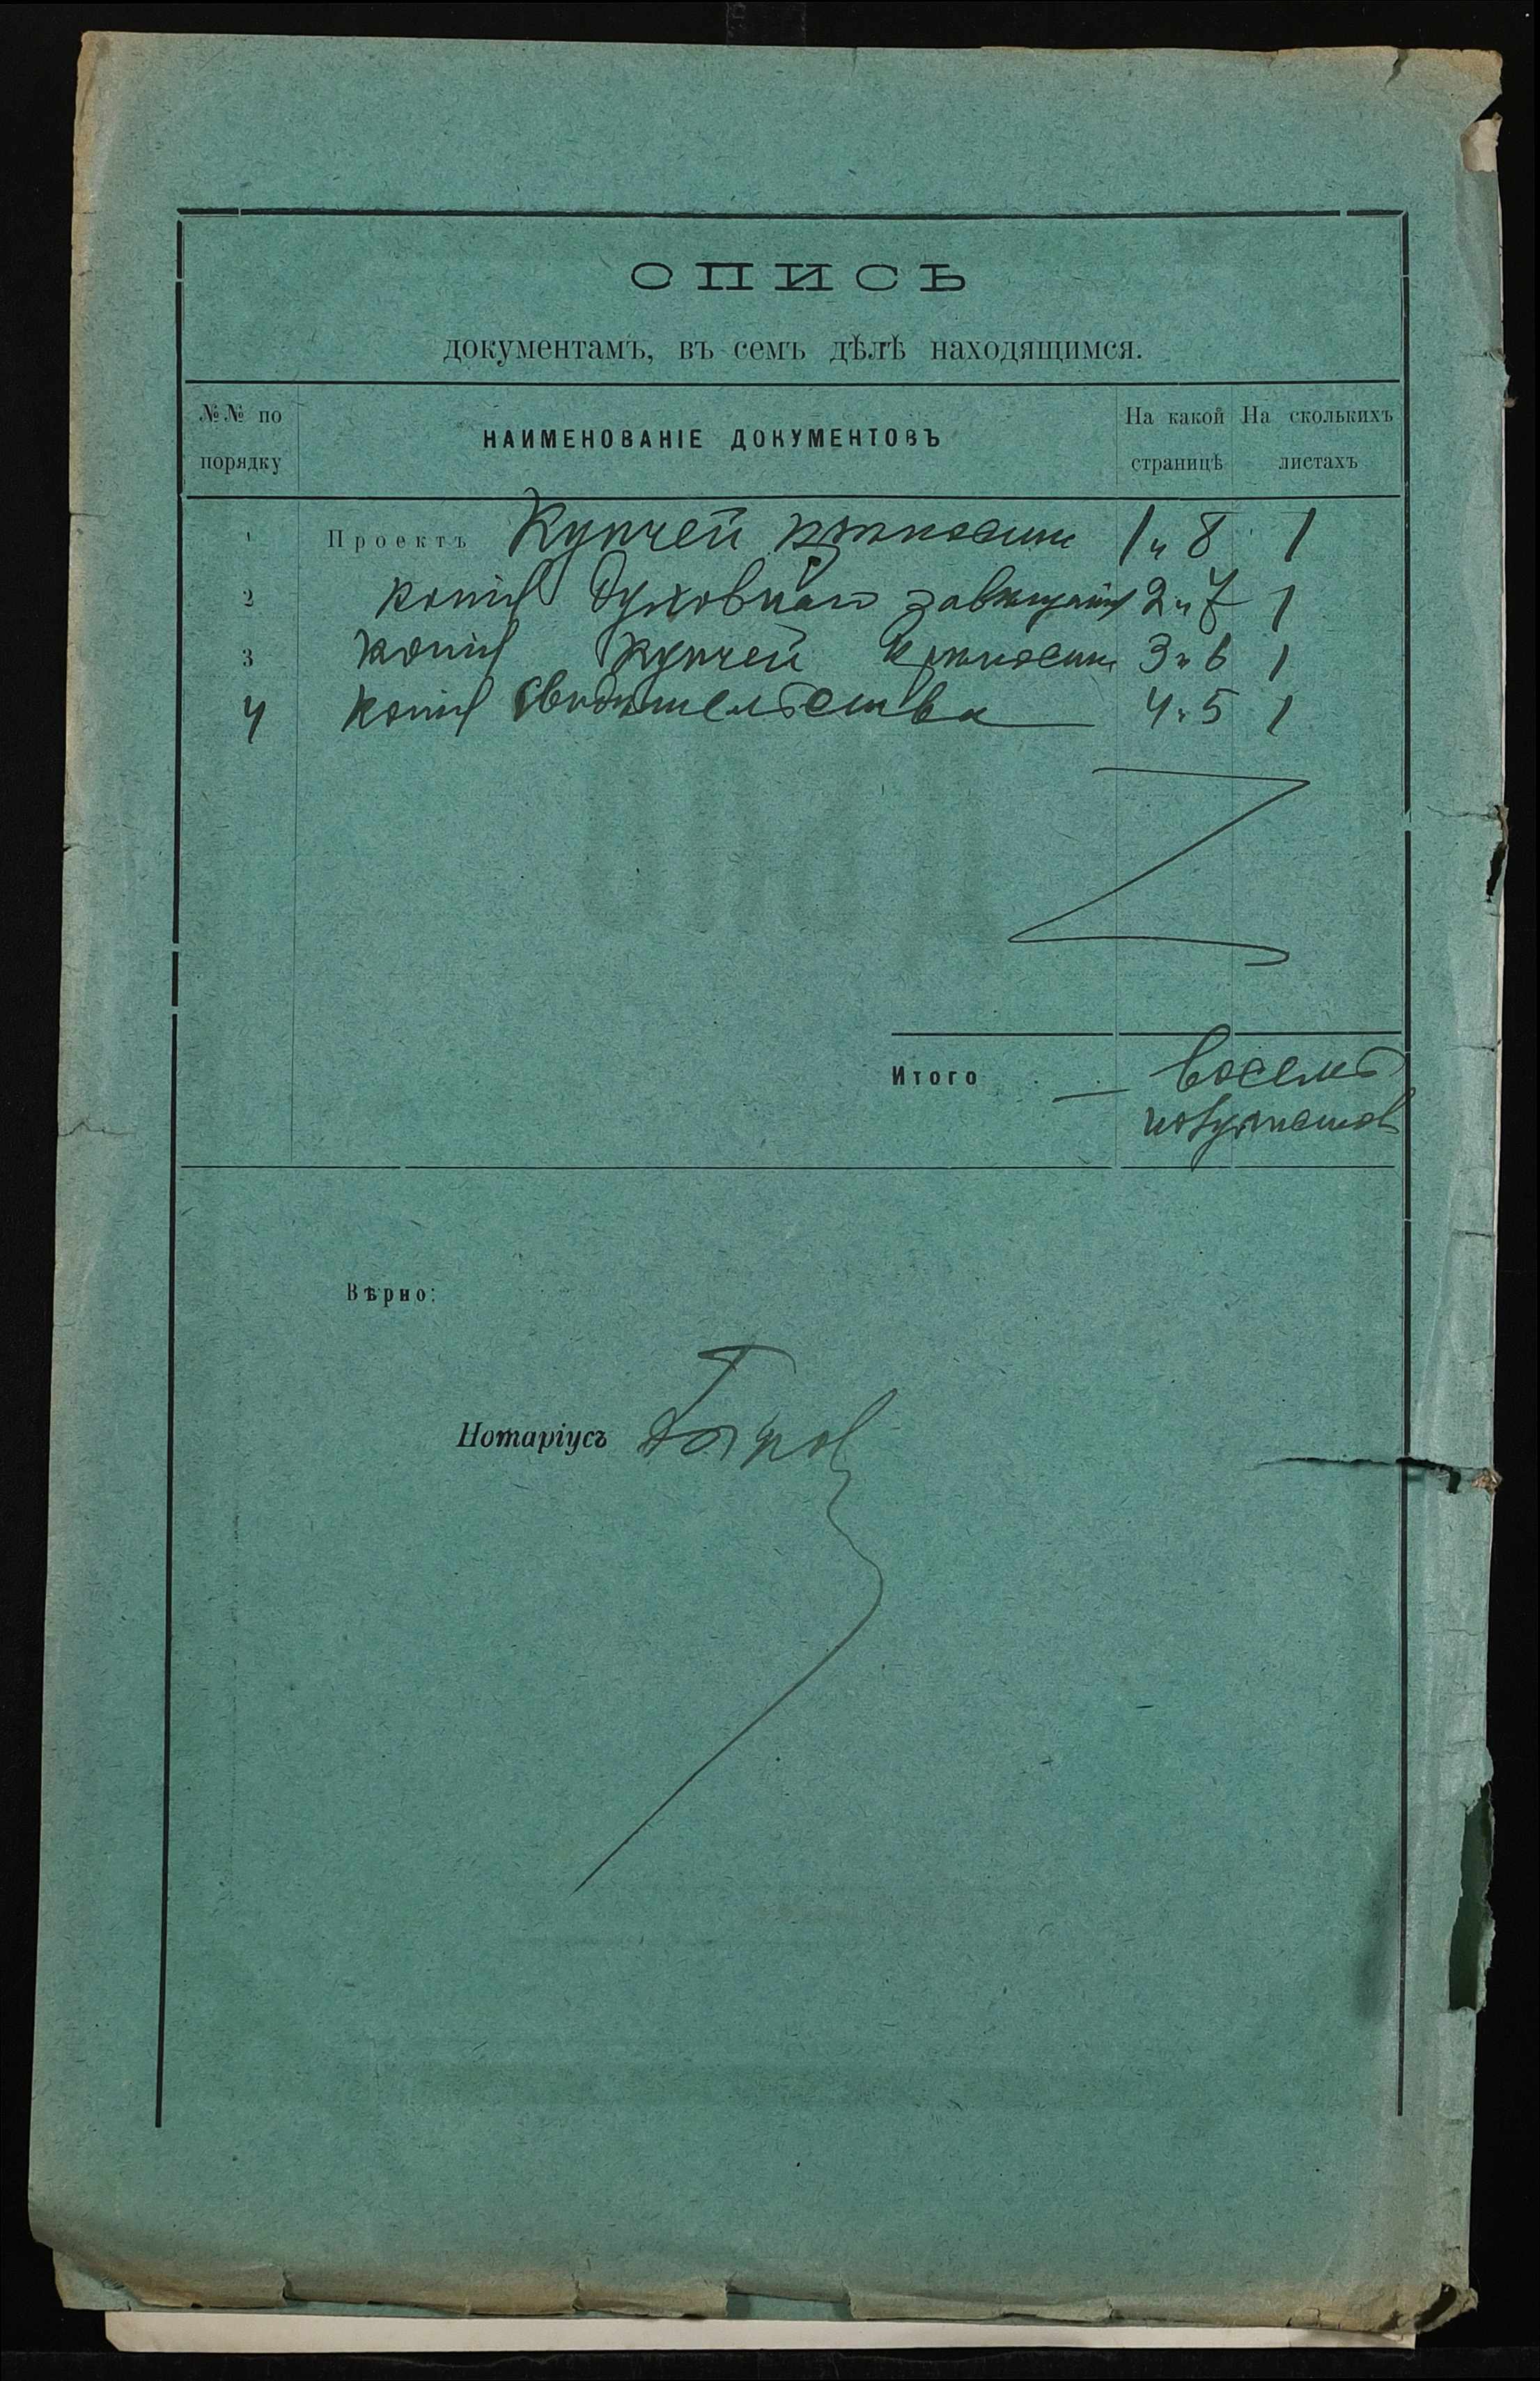 ОПИСЬ
документамъ, въ семъ дѣлѣ находящимся.
№№ по порядку
НАИМЕНОВАНІЕ ДОКУМЕНТОВЪ
На какой страницѣ
На сколькихъ листахъ
1 Проектъ Купчей крѣпости 1 и 8 1
2 копія духовнаго завѣщанія 2 и 7 1
3 копія купчей крѣпости 3 и 6 1
4 копія свидѣтельства 4 и 5 1
Итого восемь
полулистов
Вѣрно:
Нотаріусъ